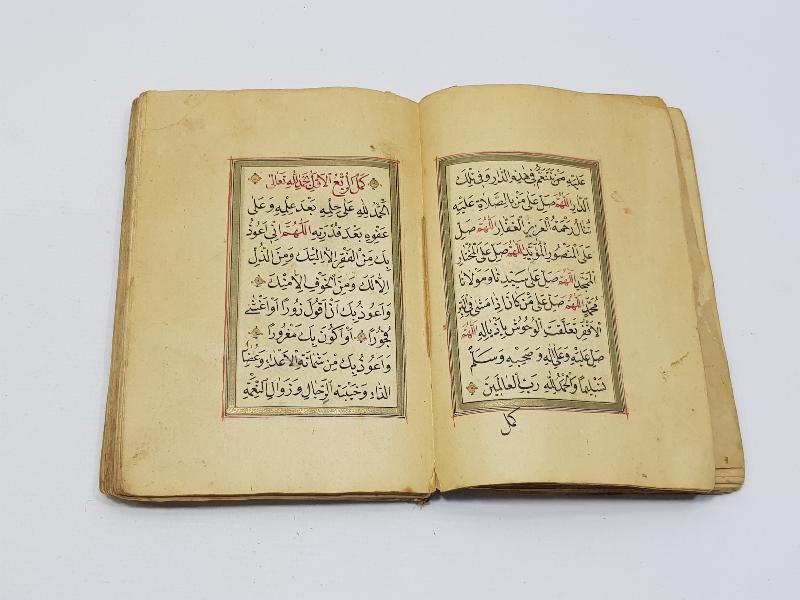 عَلَيْهِ مَنْ يَتَنَعَّمُ فِي هَذِهِ الدَّارِ وَفِي تِلْكَ
الدَّارِ اللَّهُمَّ صَلِّ عَلَى مَنْ بِالصَّلَاةِ عَلَيْهِ
تُنَالُ رَحْمَةُ الْعَزِيزِ الْغَفَّارِ اللَّهُمَّ صَلِّ
عَلَى الْمَنْصُورِ الْمُؤَيَّدِ اللَّهُمَّ صَلِّ عَلَى الْمُخْتَارِ
الْمُمَجَّدِ اللَّهُمَّ صَلِّ عَلَى سَيِّدِنَا وَمَوْلَانَا
مُحَمَّدٍ اللَّهُمَّ صَلِّ عَلَى مَنْ كَانَ إِذَا مَشَى فِي الْبَرِّ
الْأَقْفَرِ تَعَلَّقَتِ الْوُحُوشُ بِأَذْيَالِهِ اللَّهُمَّ
صَلِّ عَلَيْهِ وَعَلَى آلِهِ وَصَحْبِهِ وَسَلِّمْ
تَسْلِيمًا وَالْحَمْدُ لِلَّهِ رَبِّ الْعَالَمِينَ
كمل
كَمُلَ الرُّبْعُ الْأَوَّلُ بِحَمْدِ اللَّهِ تَعَالَى
الْحَمْدُ لِلَّهِ عَلَى حِلْمِهِ بَعْدَ عِلْمِهِ وَعَلَى
عَفْوِهِ بَعْدَ قُدْرَتِهِ اللَّهُمَّ إِنِّي أَعُوذُ
بِكَ مِنَ الْفَقْرِ إِلَّا إِلَيْكَ وَمِنَ الذُّلِّ
إِلَّا لَكَ وَمِنَ الْخَوْفِ إِلَّا مِنْكَ
وَأَعُوذُ بِكَ أَنْ أَقُولَ زُورًا أَوْ أَغْشَى
فُجُورًا أَوْ أَكُونَ بِكَ مَغْرُورًا
وَأَعُوذُ بِكَ مِنْ شَمَاتَةِ الْأَعْدَاءِ وَعُضَالِ
الدَّاءِ وَخَيْبَةِ الرَّجَاءِ وَزَوَالِ النِّعْمَةِ